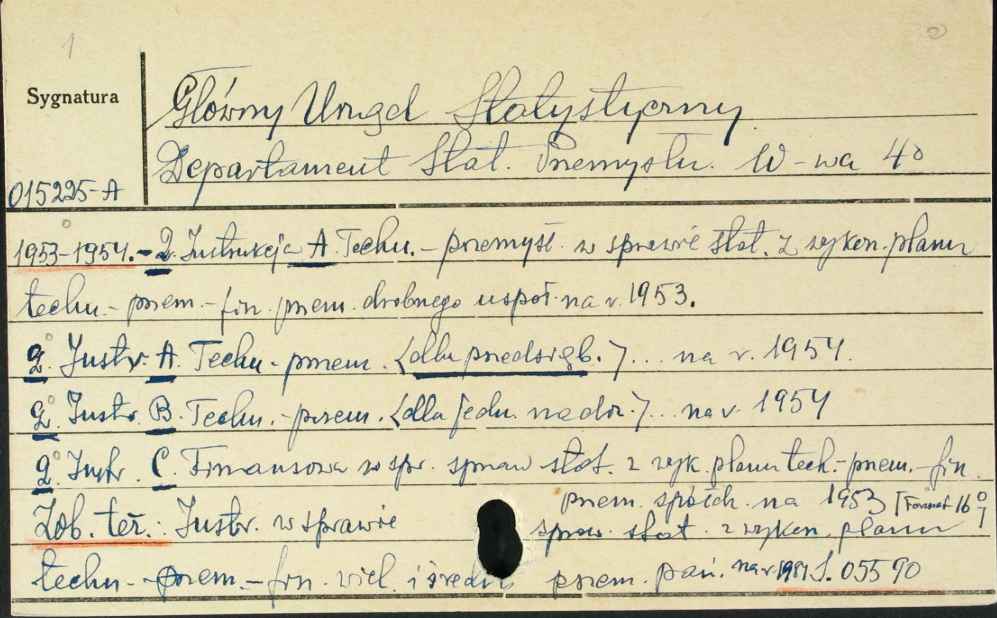 1
Sygnatura
Główny Urząd Statystyczny
Departament Stat. Przemysłu. W-wa 40
015225-A
1953-1954.-2° Instrukcja A. Techn.-przemysł. w sprawie stat. z wykon. planu
techn.-przem.-fin. przem. drobnego uspoł. na r. 1953.
2° Instr. A. Techn.-przem. <dla przedsięb.>... na r. 1954.
2° Instr. B. Techn.-przem. <dla jedn. nadrz.>... na r. 1954
2° Instr. C. Finansowa w spr. spraw stat. z wyk. planu tech.-przem.-fin.
przem. spółdz. na 1953 [Format 16°]
Zob. też.: Instr. w sprawie spraw. stat. z wykon. planu
techn.-przem.-fin. wiel. i średn. przem. pań. na r. 1951 S. 05590